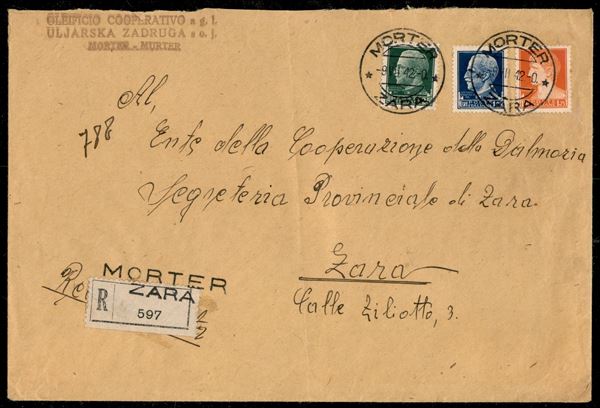 OLEIFICIO COOPERATIVO a g. l.
ULJARSKA ZADRUGA s o. j.
MORTER - MURTER
MORTER
ZARA
MORTER
ZARA
Al,
788
Ente della Cooperazione della Dalmazia
Segreteria Provinciale di Zara
Zara
Calle Ziliotto, 3.
MORTER
R
ZARA
597